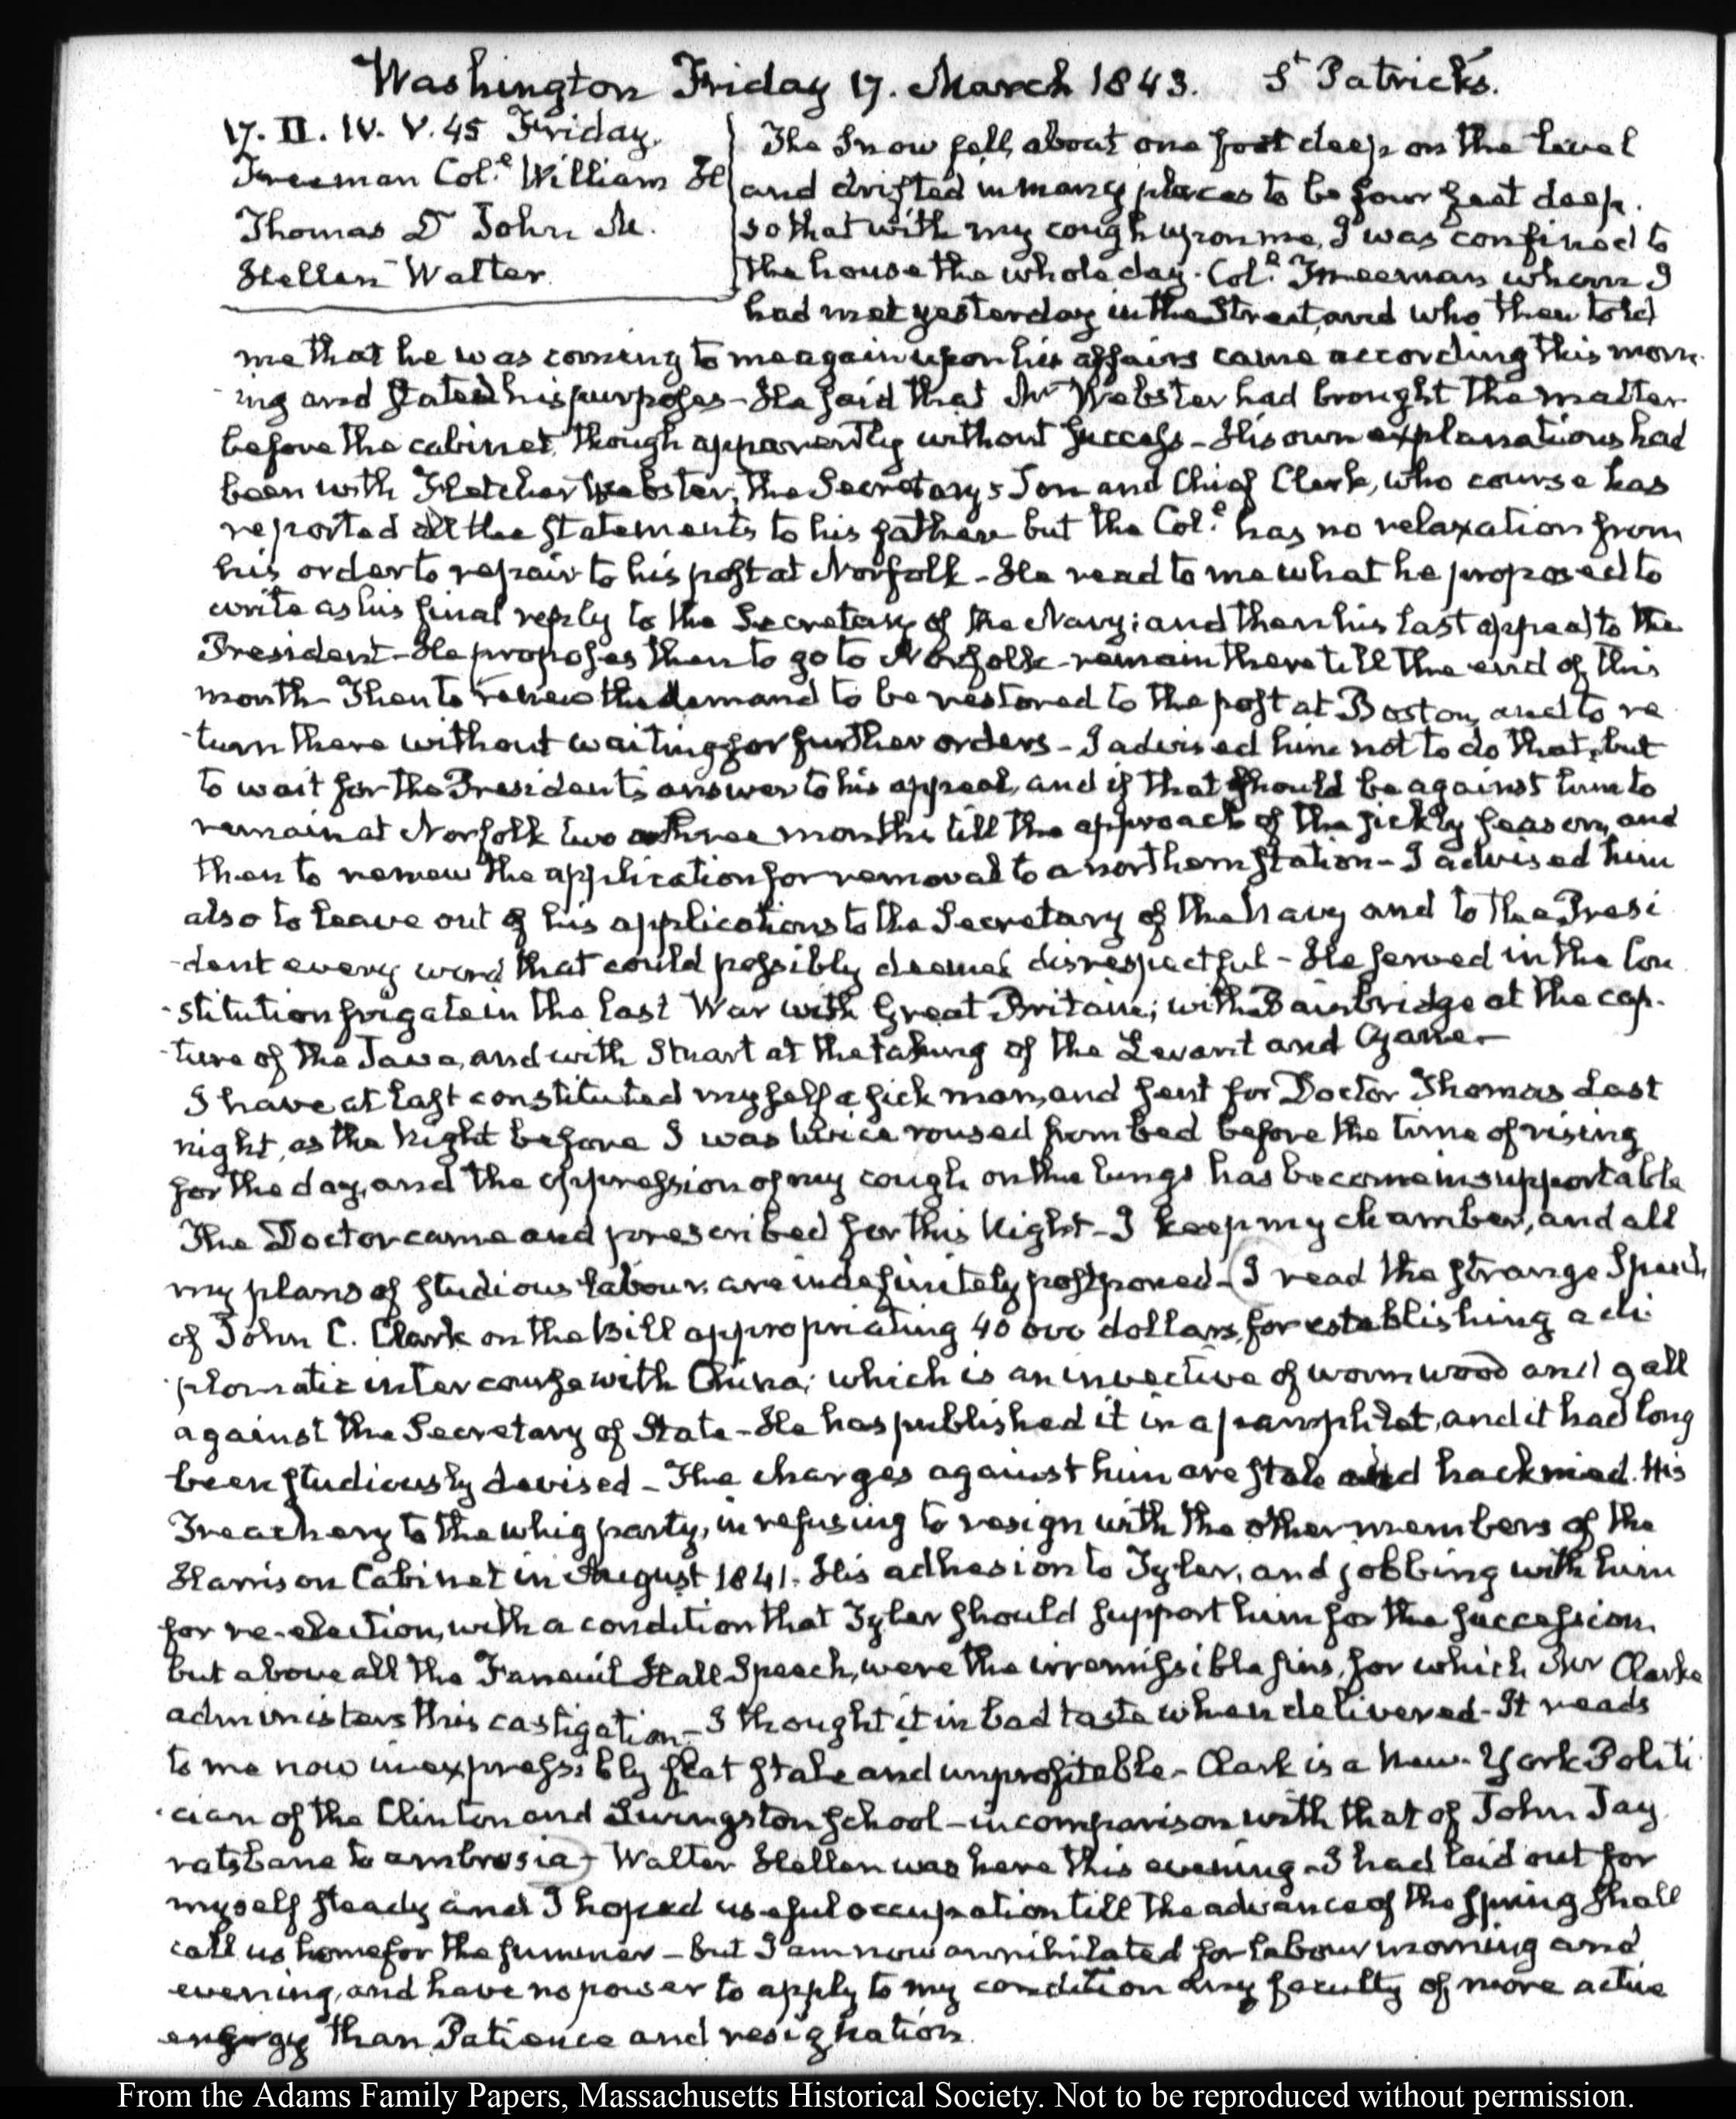 Washington Friday 17. March 1843. St Patrick's.
17. II. IV. V. 45 Friday.
Freeman Col.e William H
Thomas Dr John M.
Hellen Walter
The Snow fell, about one foot deep on the level
and drifted in many places to be four feet deep.
so that with my cough upon me, I was confined to
the house the whole day. Col.e Freeman whom I
had met yesterday in the Street, and who then told
me that he was coming to me again upon his affairs came according this morn-
-ing and stated his purposes - He said that Mr Webster had brought the matter
before the cabinet, though apparently without success - His own explanations had
been with Fletcher Webster, the Secretary's Son and Chief Clerk, who course has
reported all the statements to his father but the Col.e has no relaxation from
his order to repair to his post at Norfolk - He read to me what he proposed to
write as his final reply to the Secretary of the Navy; and then his last appeal to the
President - He proposes then to go to Norfolk - remain there till the end of this
month - Then to renew the demand to be restored to the post at Boston, and to re
-turn there without waiting for further orders - I advised him not to do that, but
to wait for the President's answer to his appeal, and if that should be against him to
remain at Norfolk two or three months till the approach of the sickly season, and
then to renew the application for removal to a northern station - I advised him
also to leave out of his applications to the Secretary of the Navy and to the Presi
-dent every word that could possibly deemed disrespectful - He served in the Con
-stitution frigate in the last War with Great Britain; with Bainbridge at the cap-
-ture of the Java, and with Stuart at the taking of the Levant and Cyane -
I have at last constituted myself a sick man, and sent for Doctor Thomas Last
night, as the Night before I was twice roused from bed before the time of rising
for the day, and the oppression of my cough on the lungs has become insupportable
The Doctor came and prescribed for this Night - I keep my chamber, and all
my plans of studious labour are indefinitely postponed - I read the strange Speech
of John C. Clark on the Bill appropriating 40 000 dollars, for establishing a di
-plomatic intercourse with China; which is an invective of wormwood and gall
against the Secretary of State - He has published it in a pamphlet, and it had long
been studiously devised - The charges against him are stale and hackneed. His
Treachery to the whig party, in refusing to resign with the other members of the
Harrison Cabinet in August 1841. His adhesion to Tyler, and jobbing with him
for re-election, with a condition that Tyler should support him for the succession
but above all the Faneuil Hall Speech, were the irremissible sins, for which Mr Clarke
administers this castigation - I thought it in bad taste when delivered - It reads
to me now inexpressibly flat stale and unprofitable - Clark is a New-York Politi
-cian of the Clinton and Livingston school - in comparison with that of John Jay
ratsbane to ambrosia - Walter Hellen was here this evening - I had laid out for
myself steady and I hoped useful occupation till the advance of the Spring shall
call us home for the summer - but I am now annihilated for labour morning and
evening, and have no power to apply to my condition any faculty of more active
energy than Patience and resignation.
From the Adams Family Papers, Massachusetts Historical Society. Not to be reproduced without permission.